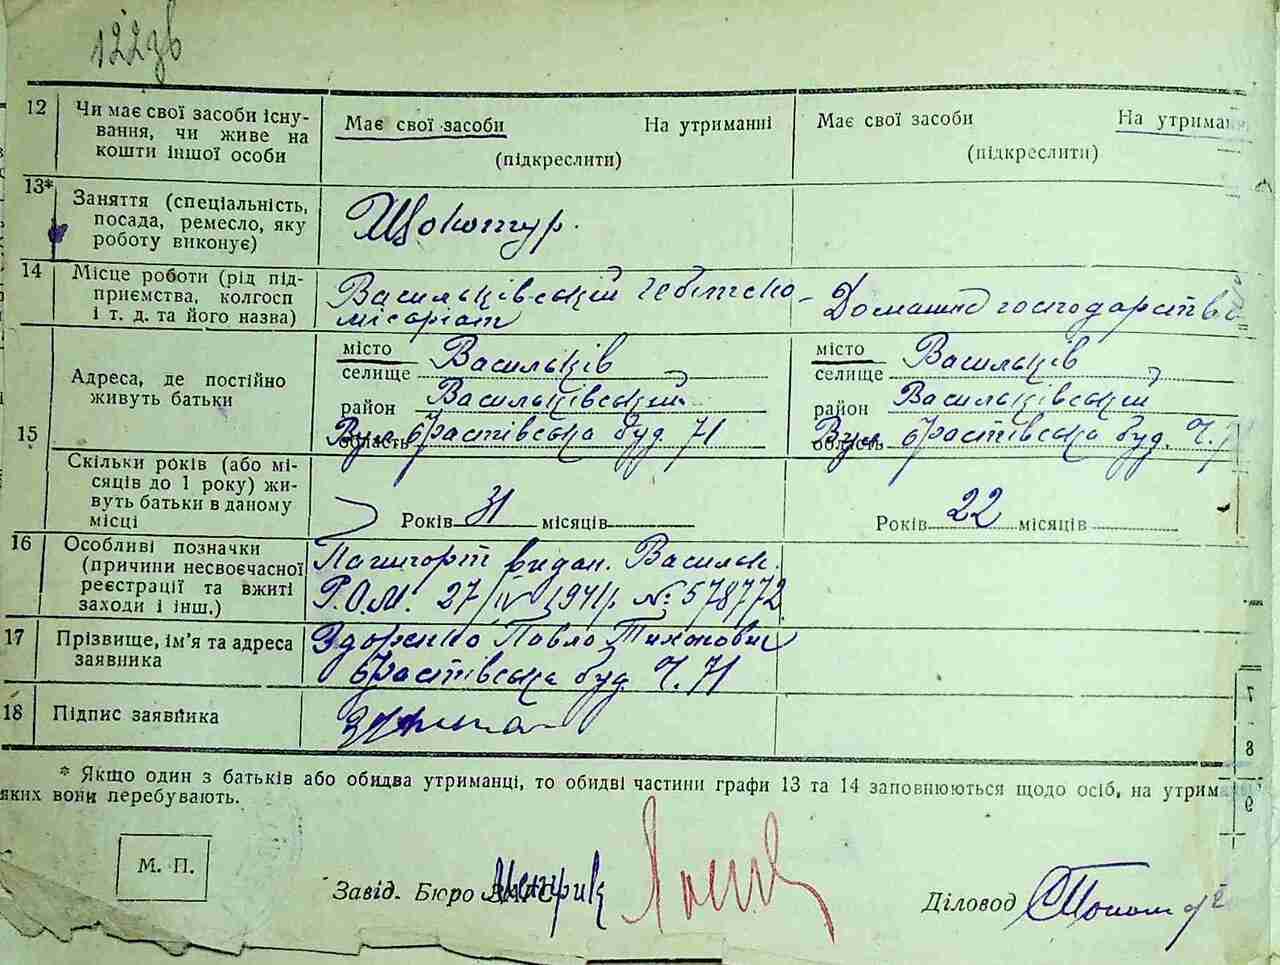 122зв
12 Чи має свої засоби існу-
вання, чи живе на
кошти іншої особи
Має свої засоби На утриманні
(підкреслити)
Має свої засоби На утриман
(підкреслити)
13* Заняття (спеціальність,
посада, ремесло, яку
роботу виконує)
Щокатур.
14 Місце роботи (рід під-
приємства, колгосп
і т. д. та його назва)
Васильківський
місаріат
Домашнє господарство
15 Адреса, де постійно
живуть батьки
місто Васильків
селище
район Васильківський
область Вул. буд. 71
місто Васильків
селище
район Васильківський
область Вул. буд. Ч. 71
Скільки років (або мі-
сяців до 1 року) жи-
вуть батьки в даному
місці
Років 31 місяців
Років 22 місяців
16 Особливі позначки
(причини несвоєчасної
реєстрації та вжиті
заходи і інш.)
Пашпорт видан. Васильк.
Р.О.М. 27/IV 1941р. № 578772
17 Прізвище, ім'я та адреса
заявника
Здоренко Павло Тихонович
буд. Ч. 71
18 Підпис заявника
* Якщо один з батьків або обидва утриманці, то обидві частини графи 13 та 14 заповнюються щодо осіб, на утрим
яких вони перебувають.
М. П.
Завід. Бюро ЗАГС Метрик
Діловод
7
8
9